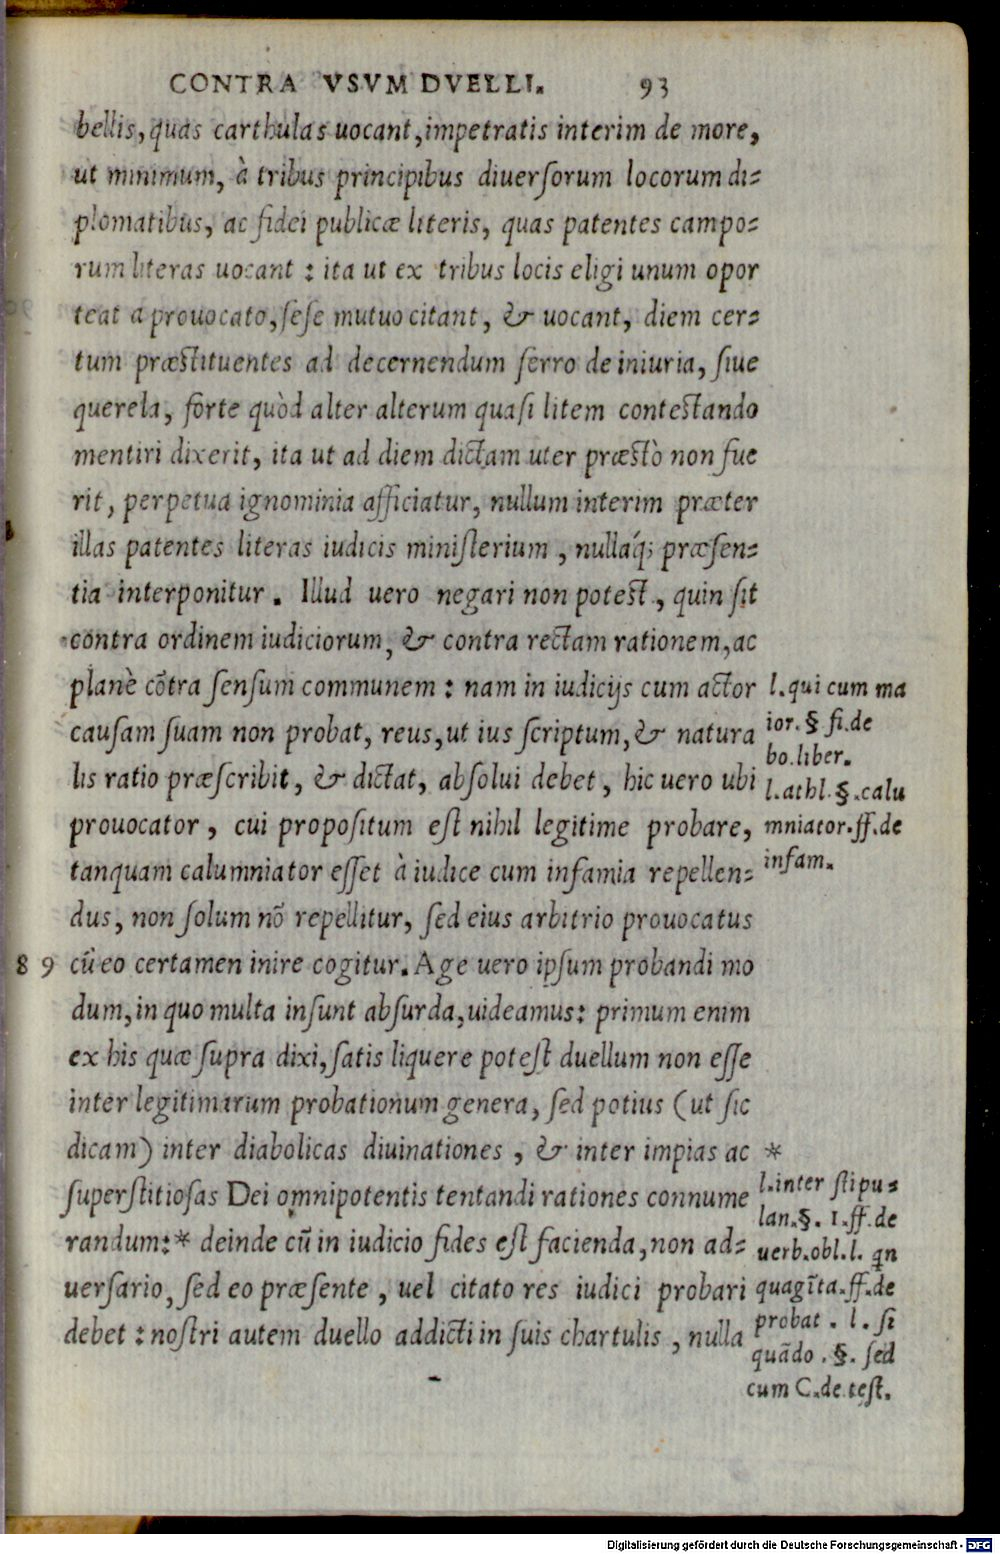 CONTRA VSVM DVELLI. 93
bellis, quas carthulas uocant, impetratis interim de more,
ut minimum, à tribus principibus diuerſorum locorum di⸗
plomatibus, ac fidei publicæ literis, quas patentes campo⸗
rum literas uocant : ita ut ex tribus locis eligi unum opor
teat a prouocato, ſeſe mutuo citant, & uocant, diem cer⸗
tum præſtituentes ad decernendum ferro de iniuria, ſiue
querela, forte quòd alter alterum quaſi litem conteſtando
mentiri dixerit, ita ut ad diem dictam uter præſtò non fue
rit, perpetua ignominia afficiatur, nullum interim præter
illas patentes literas iudicis miniſterium, nullaq́; præſen⸗
tia interponitur. Illud uero negari non poteſt, quin ſit
contra ordinem iudiciorum, & contra rectam rationem, ac
planè cõtra ſenſum communem : nam in iudicijs cum actor
causam ſuam non probat, reus, ut ius ſcriptum, & natura
lis ratio præſcribit, & dictat, abſolui debet, hic uero ubi
prouocator, cui propoſitum eſt nihil legitime probare,
tanquam calumniator eſſet à iudice cum infamia repellen⸗
dus, non ſolum nõ repellitur, ſed eius arbitrio prouocatus
89 cũ eo certamen inire cogitur. Age uero ipſum probandi mo
dum, in quo multa inſunt abſurda, uideamus: primum enim
ex his quæ ſupra dixi, ſatis liquere poteſt duellum non eſſe
inter legitimarum probationum genera, ſed potius (ut ſic
dicam) inter diabolicas diuinationes, & inter impias ac
ſuperſtitioſas Dei omnipotentis tentandi rationes connume
randum:* deinde cũ in iudicio fides eſt facienda, non ad⸗
uerſario, ſed eo præſente, uel citato res iudici probari
debet : noſtri autem duello addicti in ſuis chartulis, nulla
l. qui cum ma
ior. § fi. de
bo. liber.
l. athl. §. calu
mniator. ff. de
infam.
*
l. inter ſtipu⸗
lan. §. 1. ff. de
uerb. obl. l. qn
quagĩta. ff. de
probat. l. ſi
quãdo. §. ſed
cum C. de teſt.
Digitalisierung gefördert durch die Deutsche Forschungsgemeinschaft - DFG